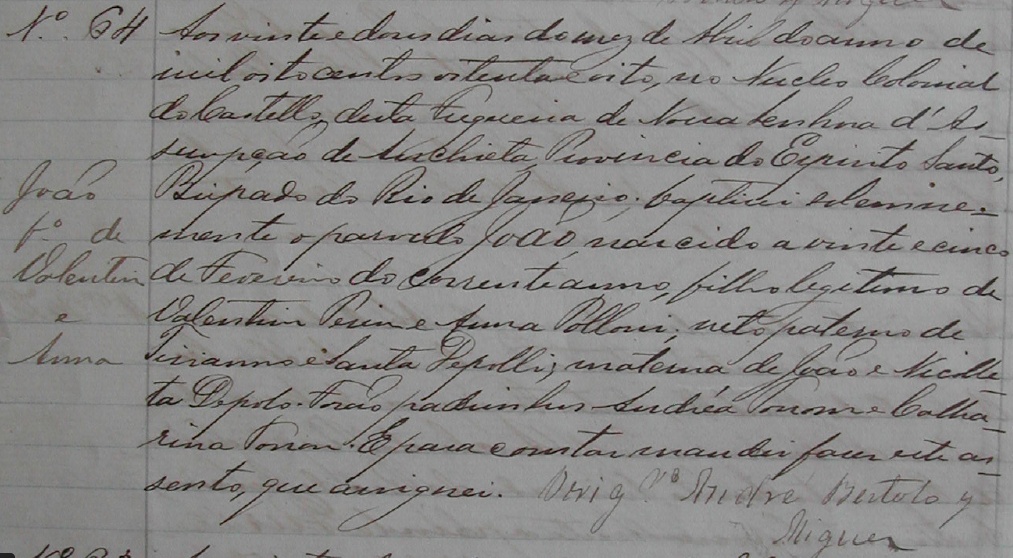 Nº. 64 Aos vinte e dous dias do mez de Abril do anno de
mil oito centos oitenta e oito, no Nucleo Colonial
do Castello, desta Freguezia de Nossa Senhora d'As-
sumpção de Anchieta, Provincia do Espirito Santo,
João Bispado do Rio de Janeiro, baptizei solemne-
fº. de mente o parvulo João, nascido a vinte e cinco
Valentim de Fevereiro do corrente anno, filho legitimo de
e Valentim Perin e Anna Polloni; neto paterno de
Anna Tizianno e Santa Depolli; materna de João e Nicolle-
ta Depolo. Forão padrinhos Andréa Tonon e Catha-
rina Tonon. E para constar mandei fazer este as-
sento, que assignei. Vrig. Vº Andre Bertolo y
Miguez